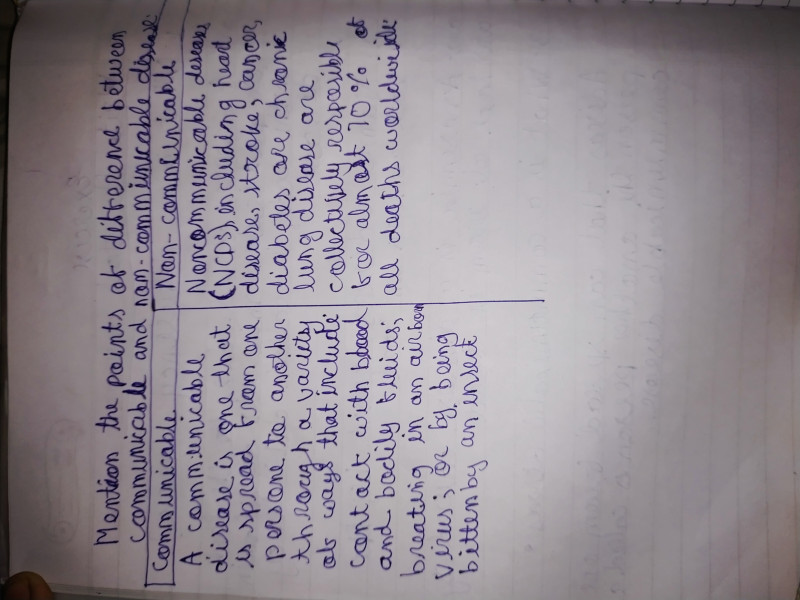 Mention the points of difference between
communicable and non-communicable disease:
Communicable
A communicable
disease is one that
is spread from one
persone to another
through a variety
of ways that include:
contact with blood
and bodily fluids;
breating in an airborn
virus; or by being
bitten by an insect
Non-communicable
Noncommunicable diseases
(NCDS), including heart
disease, stroke, cancer,
diabetes are chronic
lung disease are
collectively resposible
for almost 70% of
all deaths worldwide: